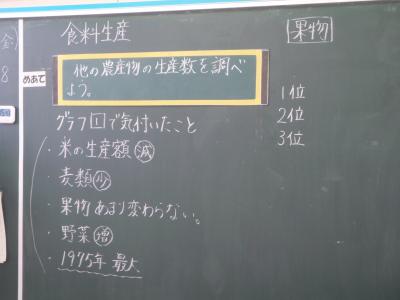 食料生産
果物
(金)
8
めあて
他の農産物の生産数を調べ
よう。
1位
2位
3位
グラフ1で気付いたこと
・米の生産額 減
・麦類 少
・果物 あまり変わらない。
・野菜 増
・1975年 最大